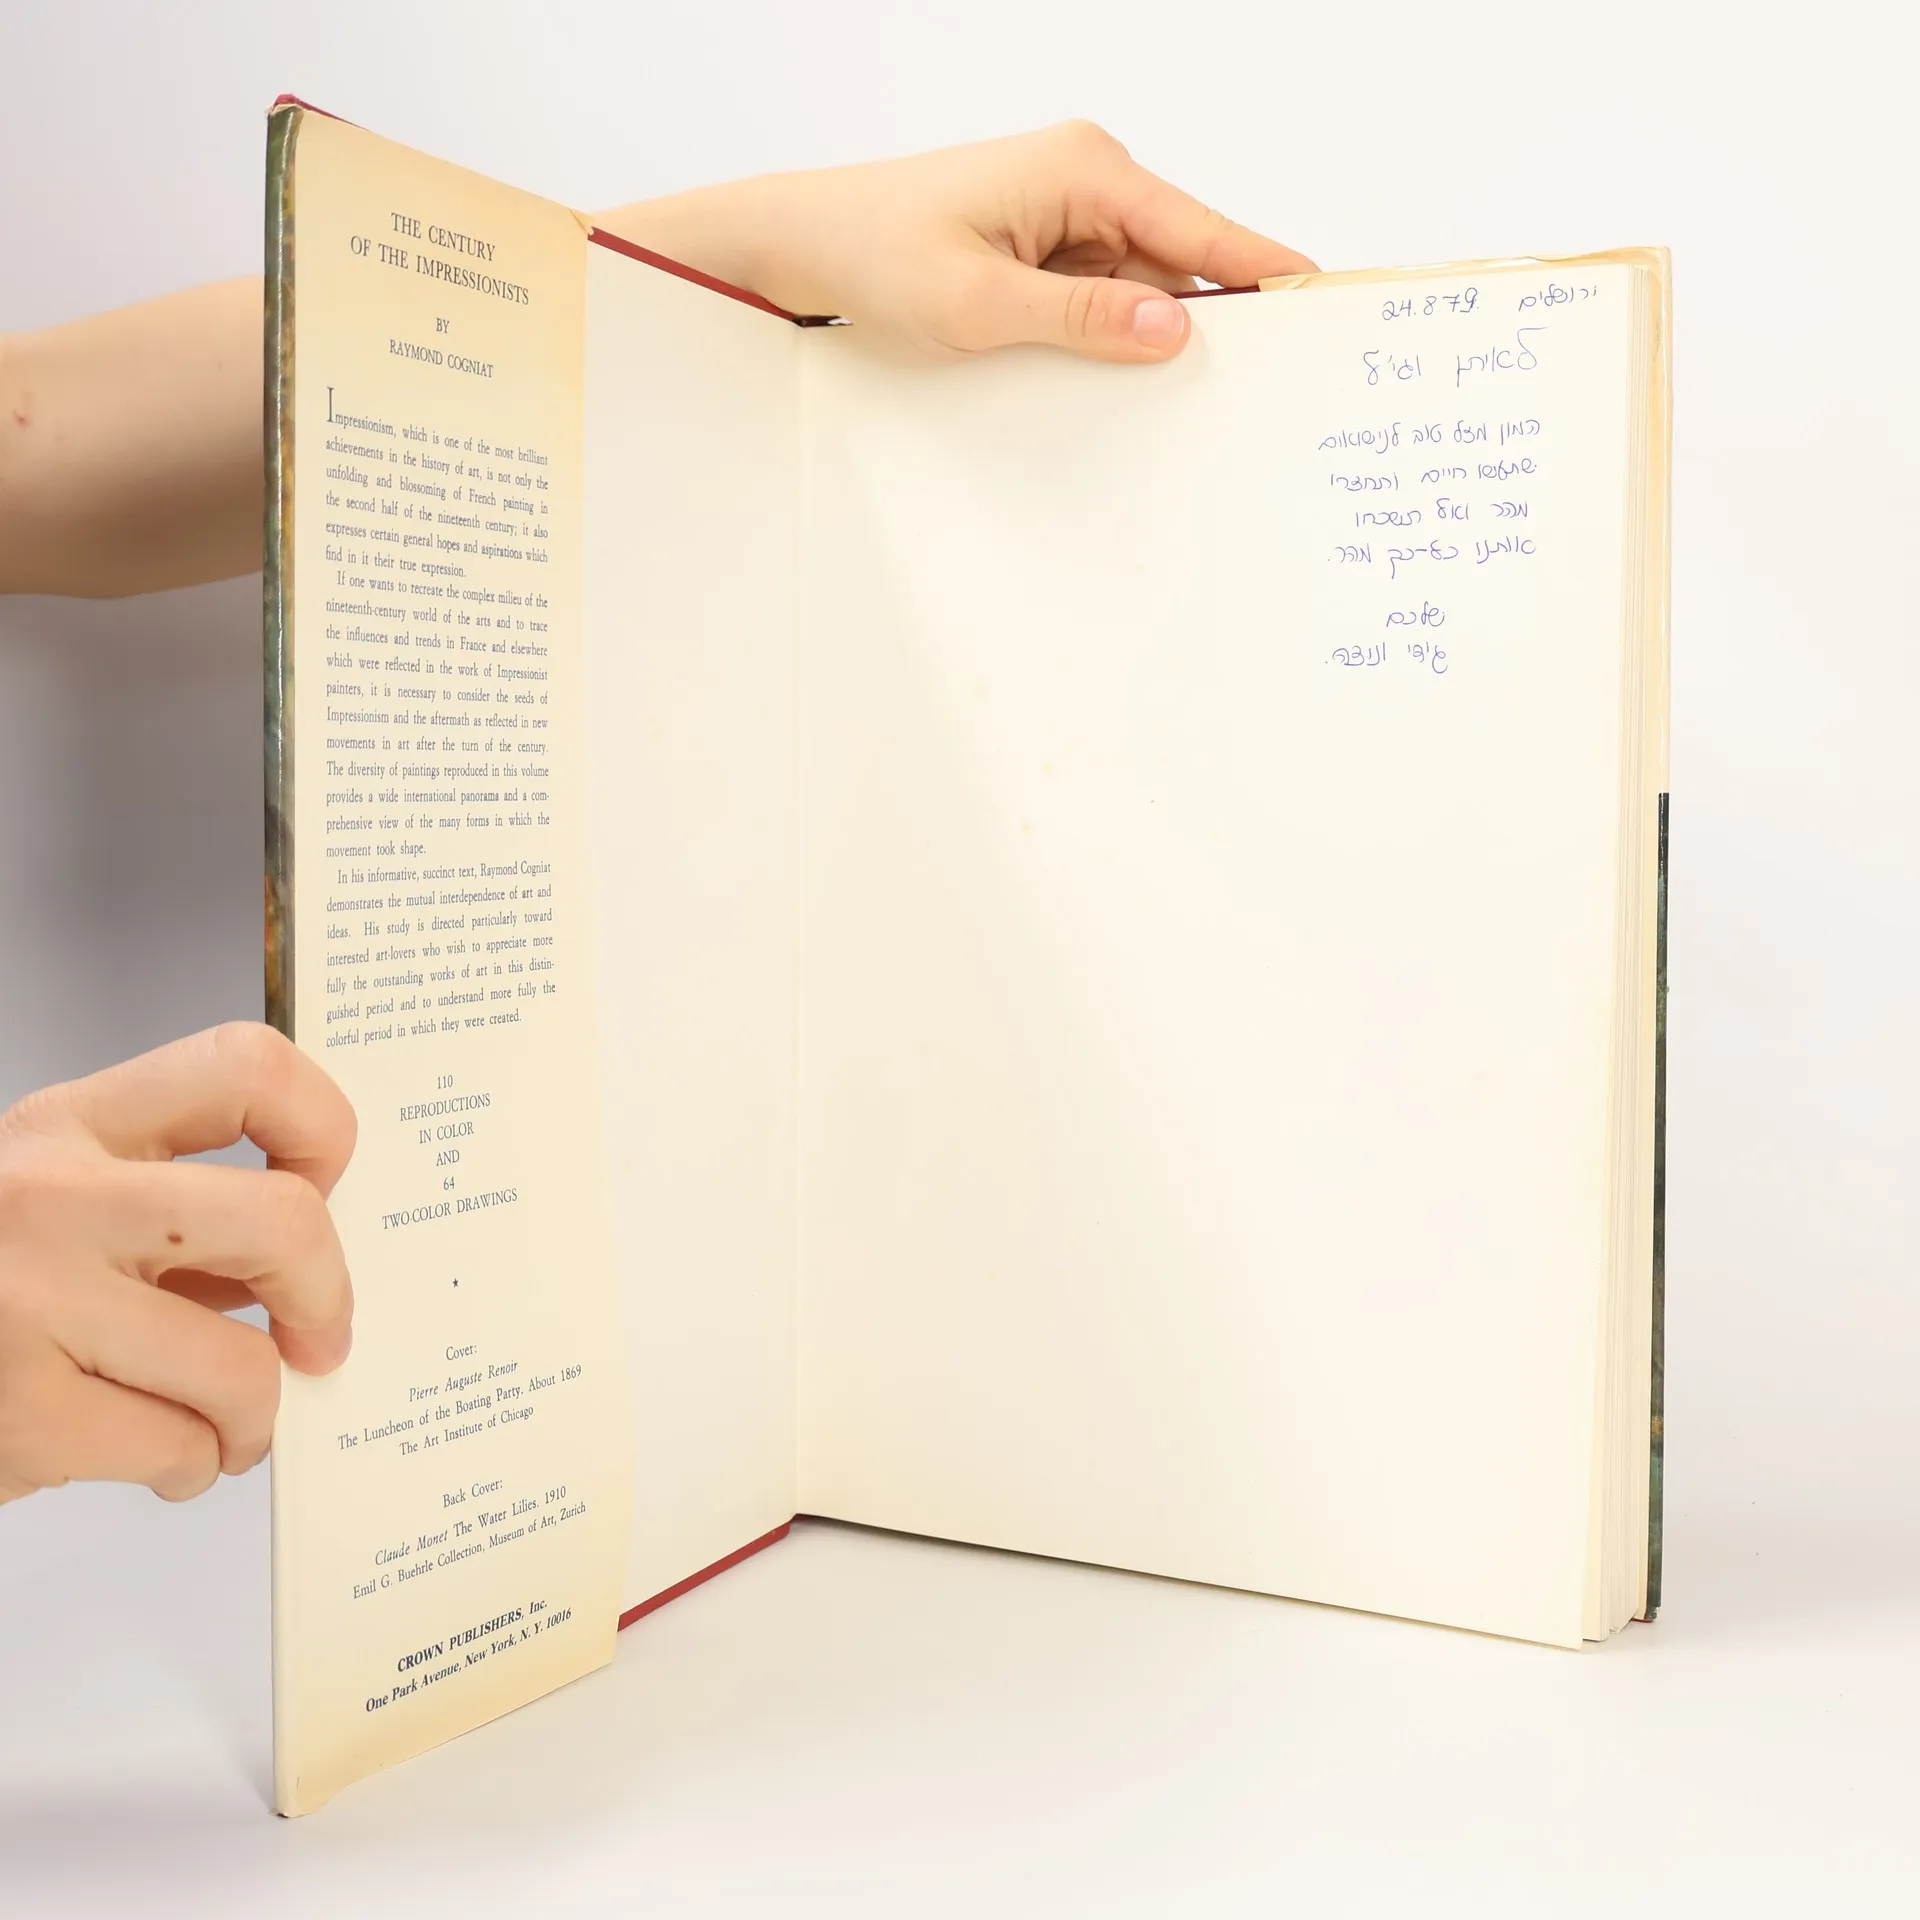 THE CENTURY
OF THE IMPRESSIONISTS
BY
RAYMOND COGNIAT
Impressionism, which is one of the most brilliant
achievements in the history of art, is not only the
unfolding and blossoming of French painting in
the second half of the nineteenth century; it also
expresses certain general hopes and aspirations which
find in it their true expression.
If one wants to recreate the complex milieu of the
nineteenth-century world of the arts and to trace
the influences and trends in France and elsewhere
which were reflected in the work of Impressionist
painters, it is necessary to consider the seeds of
Impressionism and the aftermath as reflected in new
movements in art after the turn of the century.
The diversity of paintings reproduced in this volume
provides a wide international panorama and a com-
prehensive view of the many forms in which the
movement took shape.
In his informative, succinct text, Raymond Cogniat
demonstrates the mutual interdependence of art and
ideas. His study is directed particularly toward
interested art-lovers who wish to appreciate more
fully the outstanding works of art in this distin-
guished period and to understand more fully the
colorful period in which they were created.
110
REPRODUCTIONS
IN COLOR
AND
64
TWO-COLOR DRAWINGS
★
Cover:
Pierre Auguste Renoir
The Luncheon of the Boating Party. About 1869
The Art Institute of Chicago
Back Cover:
Claude Monet The Water Lilies. 1910
Emil G. Buehrle Collection, Museum of Art, Zurich
CROWN PUBLISHERS, Inc.
One Park Avenue, New York, N. Y. 10016
ירושלים 24.8.79.
לאיתן וגי'ל
המון מזל טוב לנישואים
שתעשו חיים ותחזרי
מהר ואל תשכחו
אותנו כל-כך מהר.
שלכם
גידי וניצה.